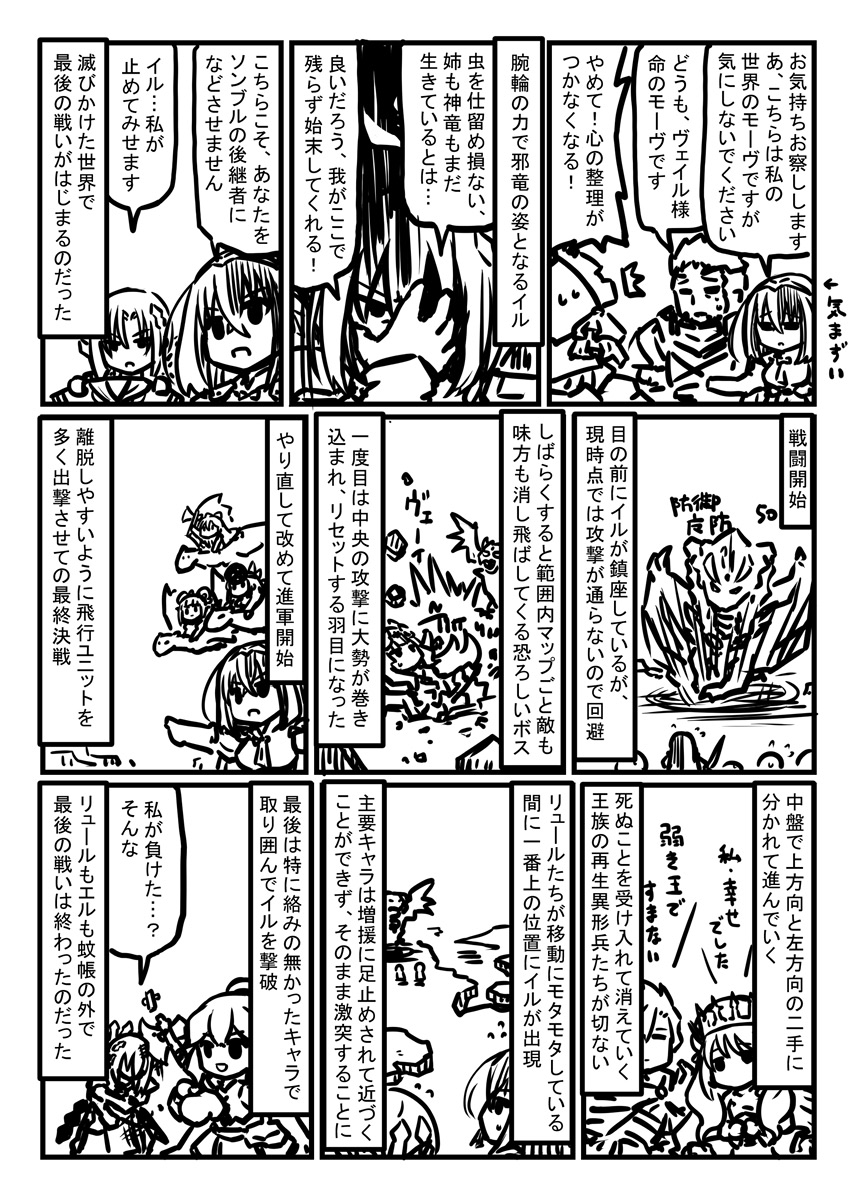 お気持ちお察しします
あ、こちらは私の
世界のモーヴですが
気にしないでください
←気まずい
どうも、ヴェイル様
命のモーヴです
やめて！心の整理が
つかなくなる！
腕輪の力で邪竜の姿となるイル
虫を仕留め損ない、
姉も神竜もまだ
生きているとは…
良いだろう、我がここで
残らず始末してくれる！
こちらこそ、あなたを
ソンブルの後継者に
などさせません
イル…私が
止めてみせます
滅びかけた世界で
最後の戦いがはじまるのだった
戦闘開始
防御
50
目の前にイルが鎮座しているが、
現時点では攻撃が通らないので回避
しばらくすると範囲内マップごと敵も
味方も消し飛ばしてくる恐ろしいボス
ヴェーイ
一度目は中央の攻撃に大勢が巻き
込まれ、リセットする羽目になった
やり直して改めて進軍開始
離脱しやすいように飛行ユニットを
多く出撃させての最終決戦
中盤で上方向と左方向の二手に
分かれて進んでいく
私・幸せ
でした
弱き王で
すまない
死ぬことを受け入れて消えていく
王族の再生異形兵たちが切ない
リュールたちが移動にモタモタしている
間に一番上の位置にイルが出現
主要キャラは増援に足止めされて近づく
ことができず、そのまま激突することに
最後は特に絡みの無かったキャラで
取り囲んでイルを撃破
私が負けた…？
そんな
リュールもエルも蚊帳の外で
最後の戦いは終わったのだった